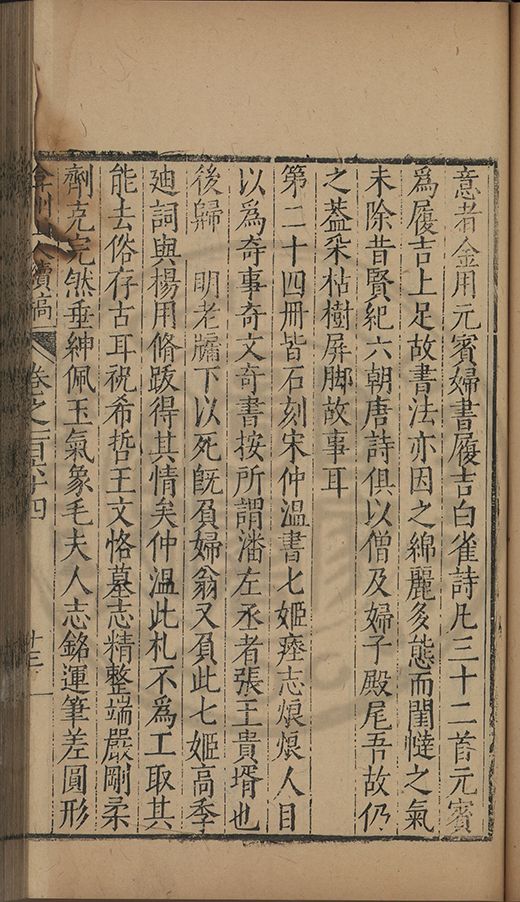 意者金用元賓婦書履吉白雀詩凡三十二首元賓
爲履吉上足故書法亦因之綿麗多態而閨闥之氣
未除昔賢紀六朝唐詩俱以僧及婦子殿尾吾故仍
之葢采枯樹屏脚故事耳
第二十四冊皆石刻宋仲溫書七姬瘞志烺烺人目
以爲奇事奇文奇書按所謂潘左丞者張王貴壻也
後歸 明老牖下以死旣負婦翁又負此七姬高季
迪詞與楊用脩跋得其情矣仲溫此札不爲工取其
能去俗存古耳祝希哲王文恪墓志精整端嚴剛柔
劑克完然垂紳佩玉氣象毛夫人志銘運筆差圓形
續稿 卷之一百六十四 十三